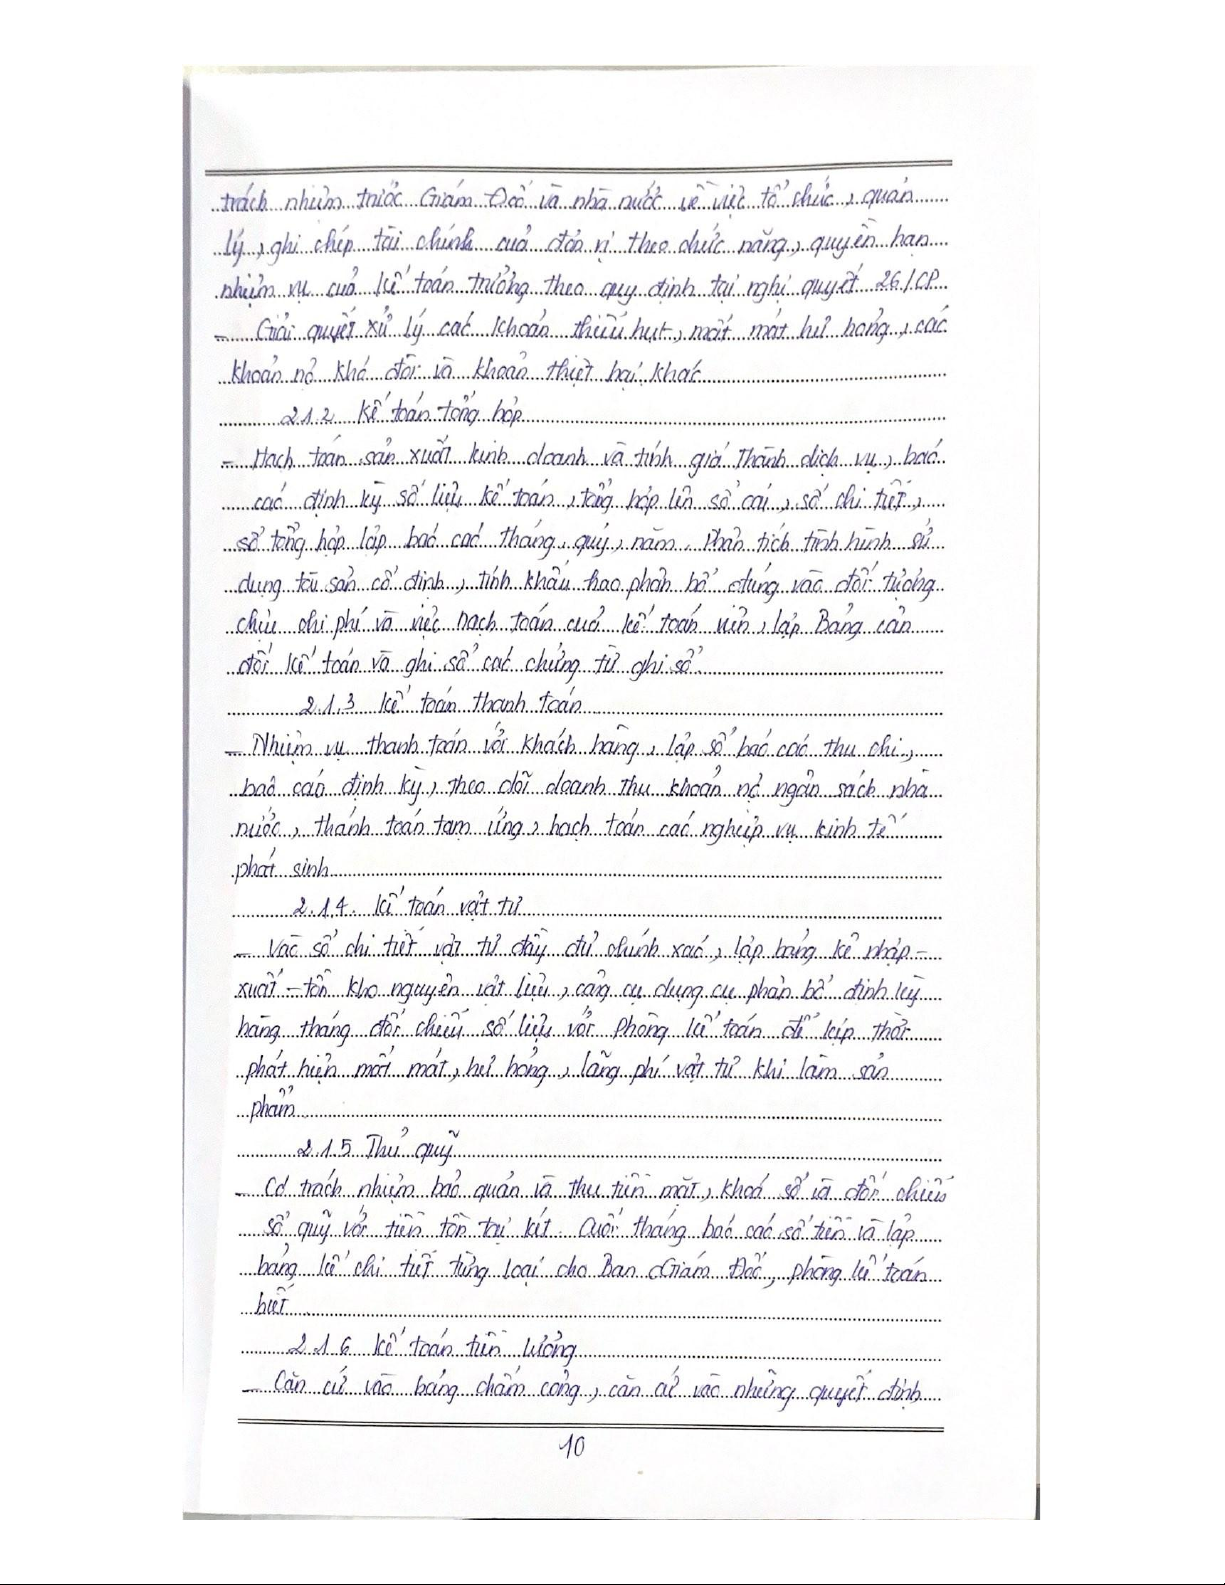 trách nhiệm trước Giám Đốc và nhà nước về việc tổ chức, quản
lý, ghi chép tài chính của đơn vị theo chức năng, quyền hạn
nhiệm vụ của kế toán trưởng theo quy định tại nghị quyết 26/CP
- Giải quyết xử lý các khoản thiếu hụt, mất mát hư hỏng, các
khoản nợ khó đòi và khoản thiệt hại khác
2.1.2 Kế toán tổng hợp
- Hạch toán sản xuất kinh doanh và tính giá thành dịch vụ, báo
cáo định kỳ số liệu kế toán, tổng hợp lên sổ cái, sổ chi tiết,
sổ tổng hợp lập báo cáo tháng, quý, năm. Phân tích tình hình sử
dụng tài sản cố định, tính khấu hao phân bổ đúng vào đối tượng
chịu chi phí và việc hạch toán của kế toán viên, lập Bảng cân
đối kế toán và ghi sổ các chứng từ ghi sổ.
2.1.3 Kế toán thanh toán
- Nhiệm vụ thanh toán với khách hàng, lập sổ báo cáo thu chi,
báo cáo định kỳ, theo dõi doanh thu khoản nợ ngân sách nhà
nước, thánh toán tạm ứng, hạch toán các nghiệp vụ kinh tế
phát sinh
2.1.4. Kế toán vật tư
- Vào sổ chi tiết vật tư đầy đủ chính xác, lập bảng kê nhập -
xuất - tồn kho nguyên vật liệu, công cụ dụng cụ phân bổ định kỳ
hàng tháng đối chiếu số liệu với Phòng kế toán để kịp thời
phát hiện mất mát, hư hỏng, lãng phí vật tư khi làm sản
phẩm
2.1.5 Thủ quỹ
- Có trách nhiệm bảo quản và thu tiền mặt, khoá sổ và đối chiếu
sổ quỹ với tiền tồn tại két. Cuối tháng báo cáo số tiền và lập
bảng kê chi tiết từng loại cho Ban Giám Đốc, phòng kế toán
biết
2.1.6 Kế toán tiền lương
- Căn cứ vào bảng chấm công, căn cứ vào những quyết định
10